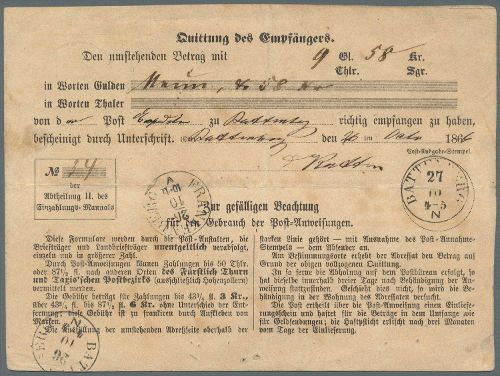 Quittung des Empfängers.
Den umstehenden Betrag mit 9 Gl. 58 Kr.
Thlr. Sgr.
in Worten Gulden Neun, & 58 Kr
in Worten Thaler
von der Post Expedition zu Battenberg richtig empfangen zu haben,
bescheinigt durch Unterschrift. Battenberg den 26 ten Octr 1866
Post-Ausgabe-Stempel.
№ 14
der
Abtheilung II. des
Einzahlungs-Manuals
BATTENBERG
27
10
4-5
N
Zur gefälligen Beachtung
für den Gebrauch der Post-Anweisungen.
Diese Formulare werden durch die Post-Anstalten, die
Briefträger und Landbriefträger unentgeltlich verabreicht,
einzeln und in größerer Zahl.
Durch Post-Anweisungen können Zahlungen bis 50 Thlr.
oder 87½ fl. nach anderen Orten des Fürstlich Thurn
und Taxis'schen Postbezirks (ausschließlich Hohenzollern)
vermittelt werden.
Die Gebühr beträgt für Zahlungen bis 43¾ fl. 3 Kr.,
über 43¾ fl. bis 87½ fl. 6 Kr. ohne Unterschied der Entfernung;
diese Gebühr ist zu frankiren durch Aufkleben von
Marken.
Die Ausfüllung der umstehenden Adreßseite oberhalb der
starken Linie gehört – mit Ausnahme des Post-Annahme-
Stempels – dem Absender an.
Am Bestimmungsorte erhebt der Adressat den Betrag auf
Grund der obigen vollzogenen Quittung.
In so ferne die Abholung auf dem Postbüreau erfolgt, so
hat dieselbe innerhalb dreier Tage nach Behändigung der Anweisung
stattzufinden. Geschieht dies nicht, so wird die Behändigung
in der Wohnung des Adressaten versucht.
Die Post ertheilt über die Post-Anweisung einen Einlieferungsschein
und haftet für den Betrag in dem Umfange
wie für Geldsendungen; die Haftpflicht erlischt nach drei Monaten
vom Tage der Einlieferung.